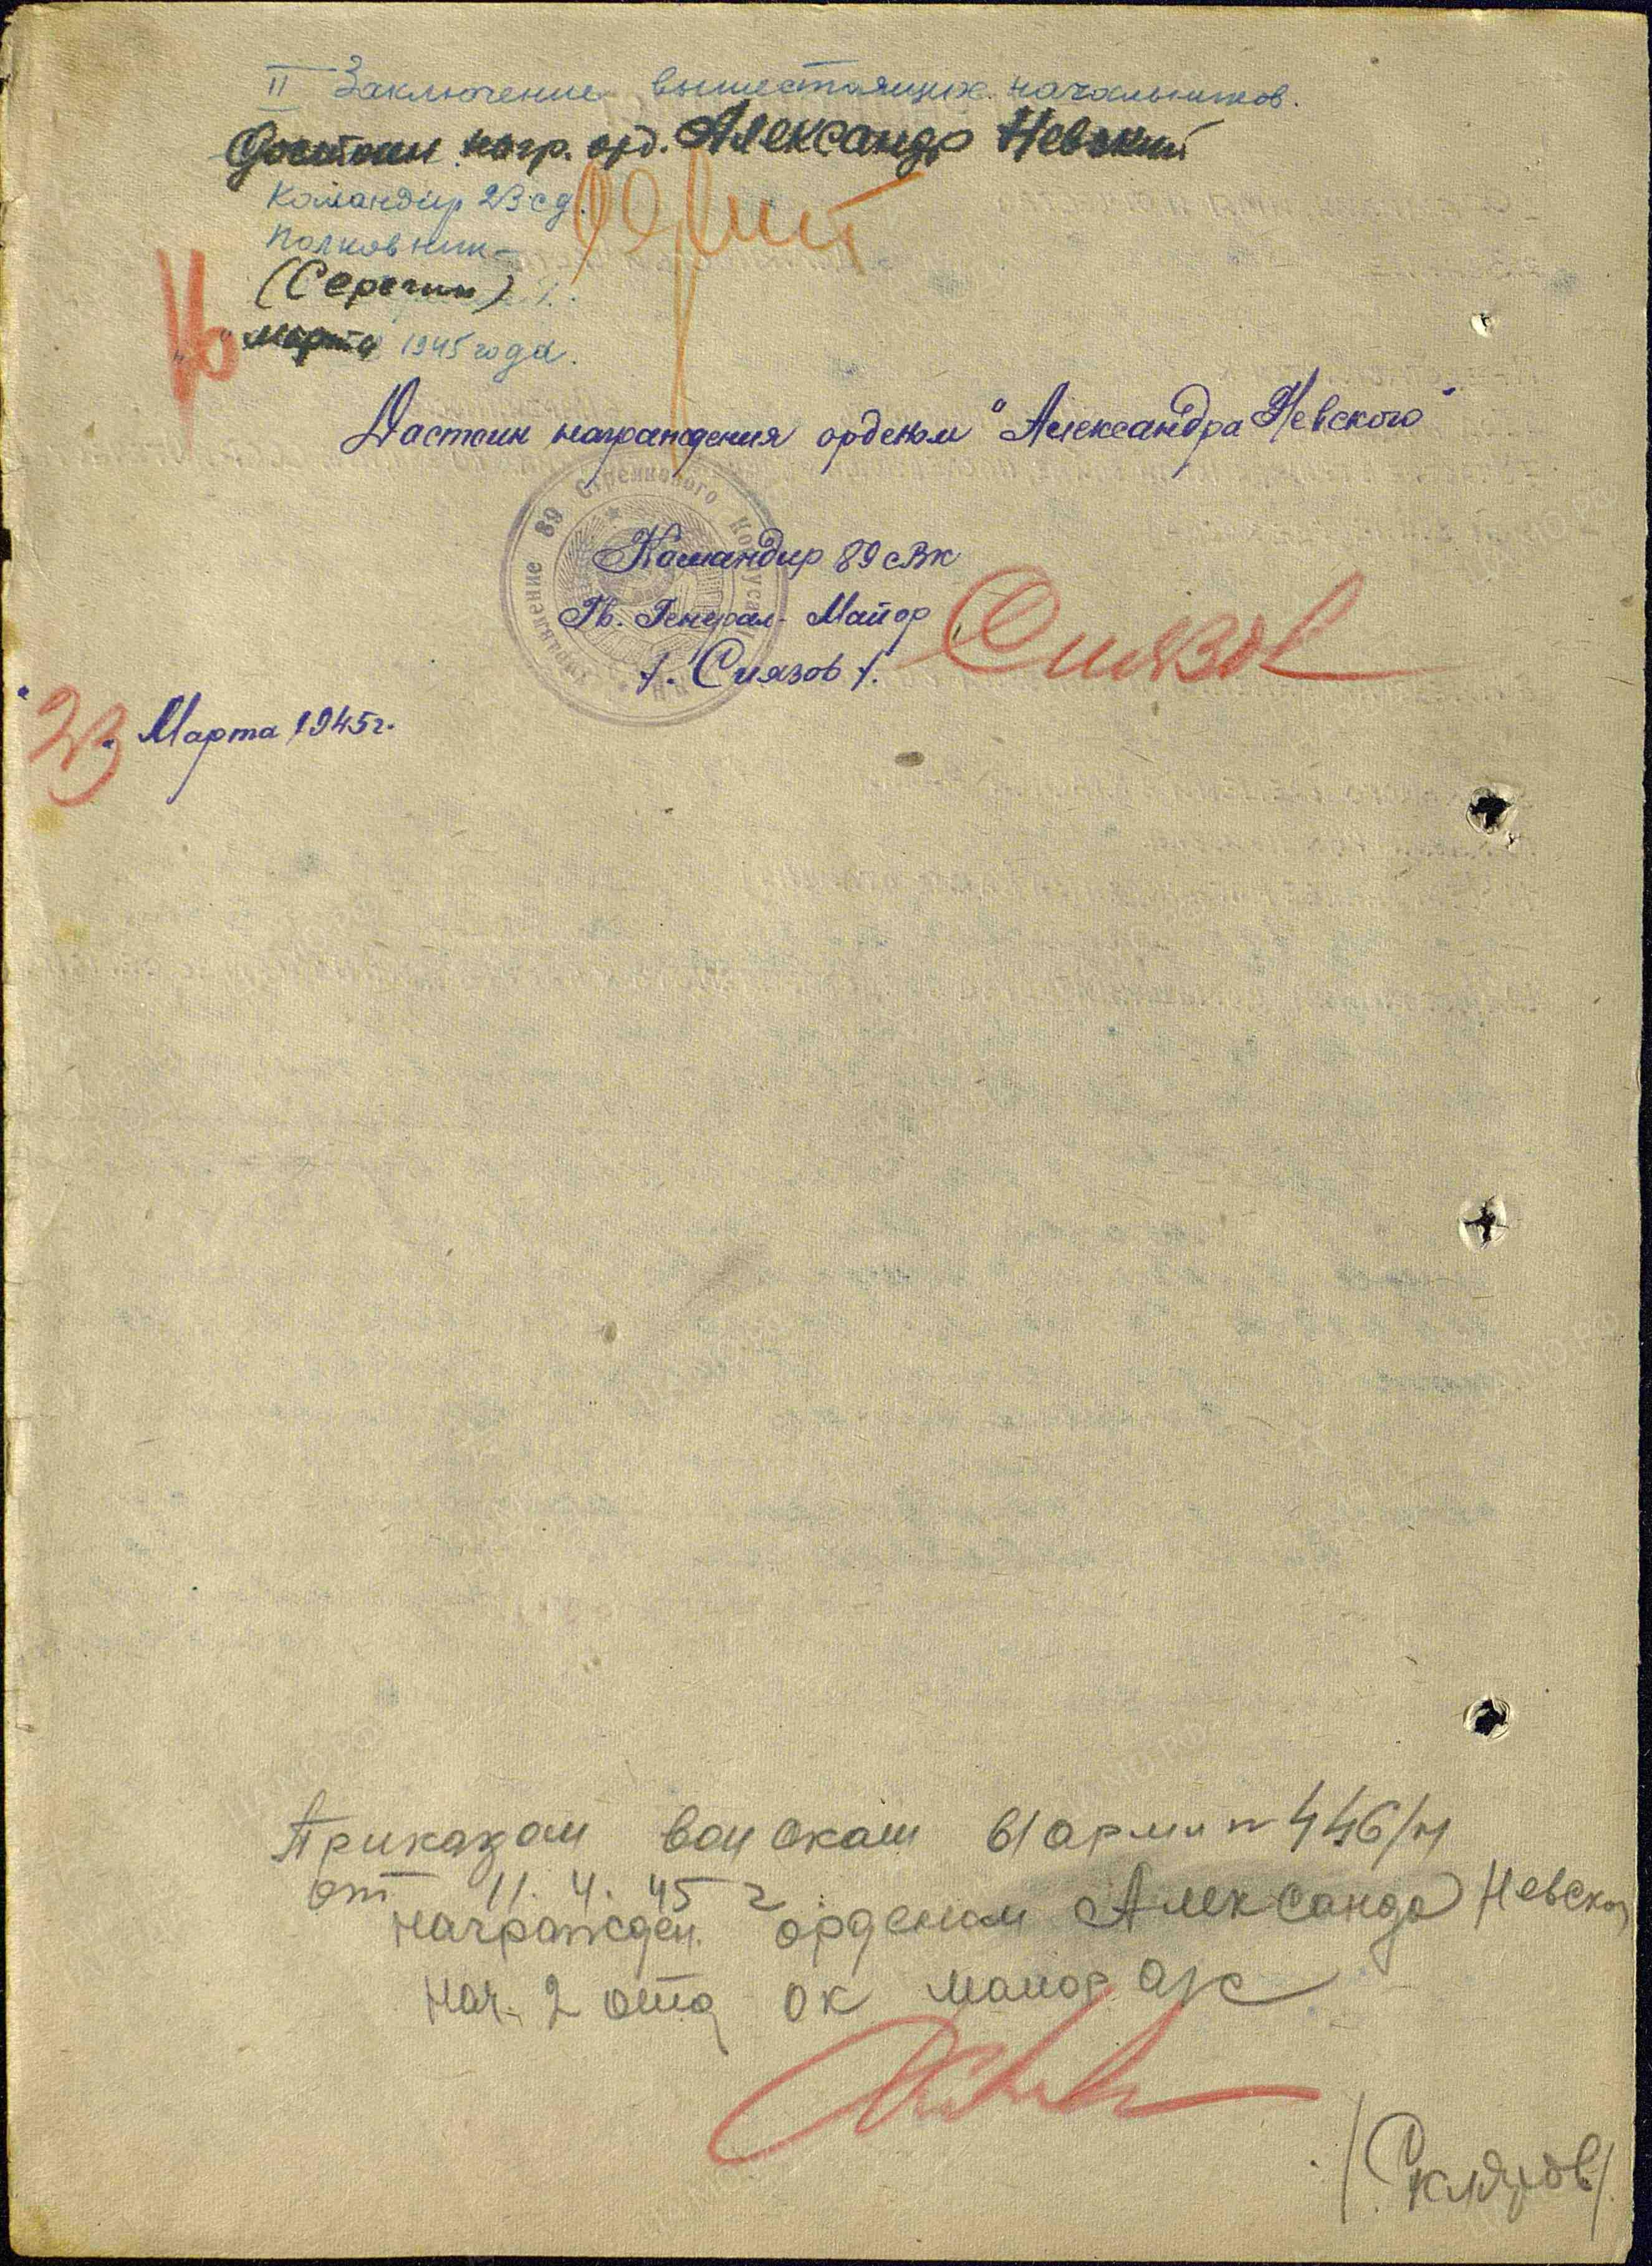 II Заключение вышестоящих начальников.
Достоин нагр. орд. Александр Невский
Командир 23 сд.
полковник-
(Серегин)
"16" марта 1945 года.
Достоин награждения орденом "Александра Невского"
Управление 89 Стрелкового Корпуса
Командир 89 СК
Гв. Генерал-Майор
/. Сиязов /.
Сиязов
"23" Марта 1945г.
Приказом войскам 61 армии N 446/н
от 11. 4. 45 г
награжден. орденом Александр Невской
Нач. 2 отд ок майор а/с
/Скляров/.